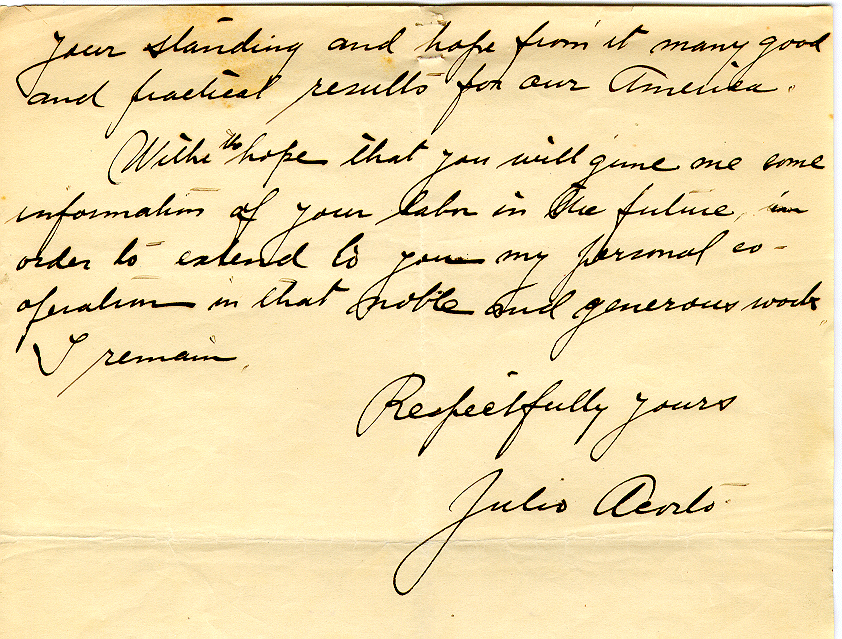 your standing and hope from it many good
and practical results for our America.
With the hope that you will give me some
information of your labor in the future, in
order to extend to you my personal co-
operation in that noble and generous work
I remain
Respectfully yours
Julio Acosta